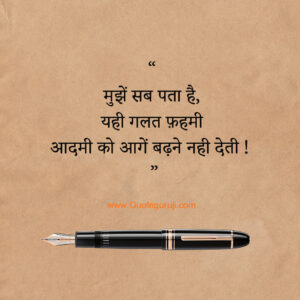 “
मुझें सब पता है,
यही गलत फ़हमी
आदमी को आगें बढ़ने नही देती !
”
www.Quoteguruji.com